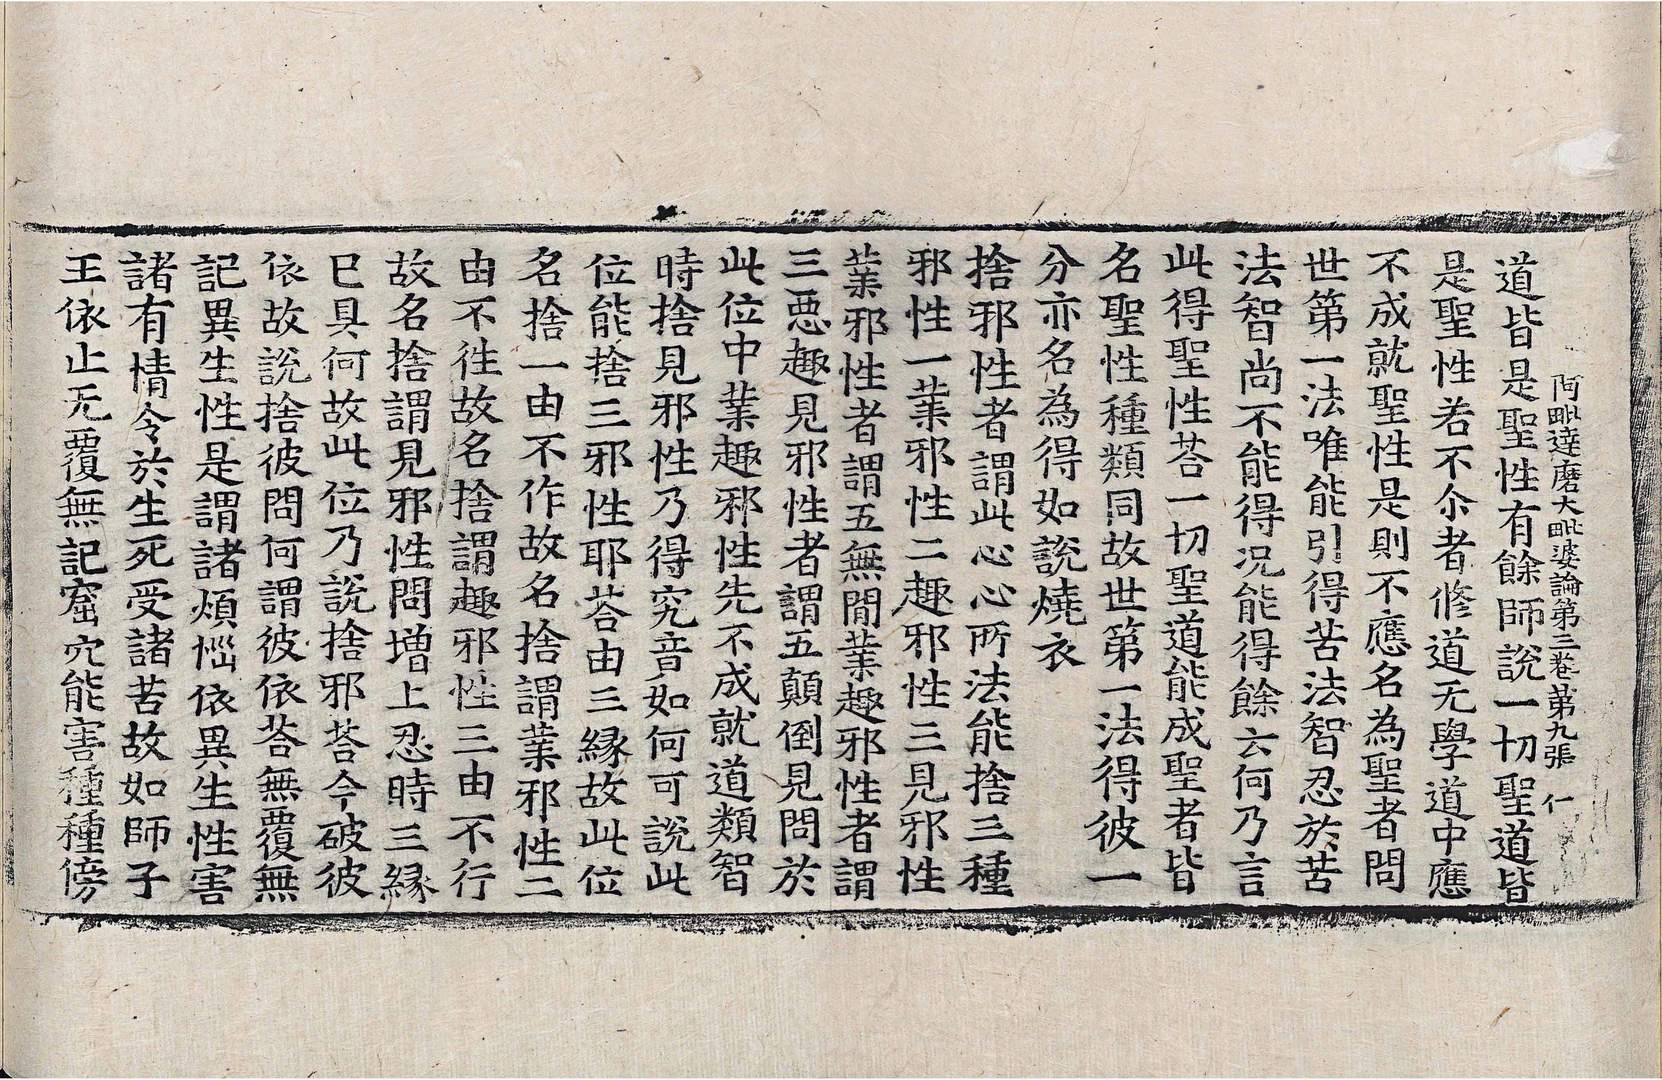 阿毗達磨大毗婆論第三卷 第九張 仁
道皆是聖性有餘師說一切聖道皆
是聖性若不尒者修道无學道中應
不成就聖性是則不應名為聖者問
世第一法唯能引得苦法智忍於苦
法智尚不能得况能得餘云何乃言
此得聖性荅一切聖道能成聖者皆
名聖性種類同故世第一法得彼一
分亦名為得如說燒衣
捨邪性者謂此心心所法能捨三種
邪性一業邪性二趣邪性三見邪性
業邪性者謂五無間業趣邪性者謂
三惡趣見邪性者謂五顛倒見問於
此位中業趣邪性先不成就道類智
時捨見邪性乃得究音如何可說此
位能捨三邪性耶荅由三緣故此位
名捨一由不作故名捨謂業邪性二
由不徃故名捨謂趣邪性三由不行
故名捨謂見邪性問增上忍時三緣
已具何故此位乃說捨邪荅今破彼
依故說捨彼問何謂彼依荅無覆無
記異生性是謂諸煩惱依異生性害
諸有情令於生死受諸苦故如師子
王依止无覆無記窟穴能害種種傍